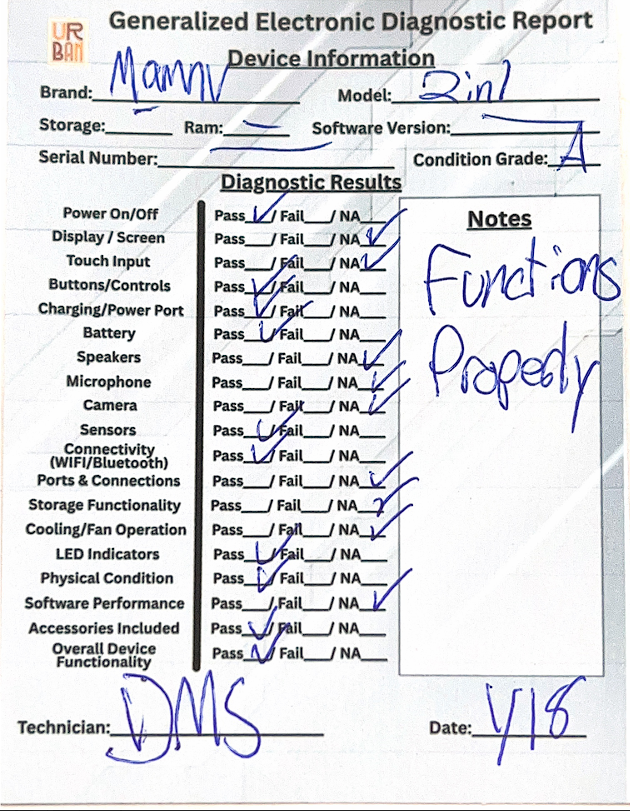 UR
BAN
Generalized Electronic Diagnostic Report
Device Information
Brand: Mamnv Model: 2in1
Storage: Ram: Software Version:
Serial Number: Condition Grade: A
Diagnostic Results
Power On/Off Pass ✓ / Fail / NA
Display / Screen Pass / Fail / NA ✓
Touch Input Pass / Fail / NA ✓
Buttons/Controls Pass ✓ / Fail / NA
Charging/Power Port Pass ✓ / Fail / NA
Battery Pass ✓ / Fail / NA
Speakers Pass / Fail / NA ✓
Microphone Pass / Fail / NA ✓
Camera Pass / Fail / NA ✓
Sensors Pass ✓ / Fail / NA
Connectivity
(WIFI/Bluetooth) Pass ✓ / Fail / NA
Ports & Connections Pass / Fail / NA ✓
Storage Functionality Pass / Fail / NA ✓
Cooling/Fan Operation Pass / Fail / NA ✓
LED Indicators Pass ✓ / Fail / NA
Physical Condition Pass ✓ / Fail / NA
Software Performance Pass / Fail / NA ✓
Accessories Included Pass ✓ / Fail / NA
Overall Device
Functionality Pass ✓ / Fail / NA
Notes
Functions
Properly
Technician: DMS Date: 1/18